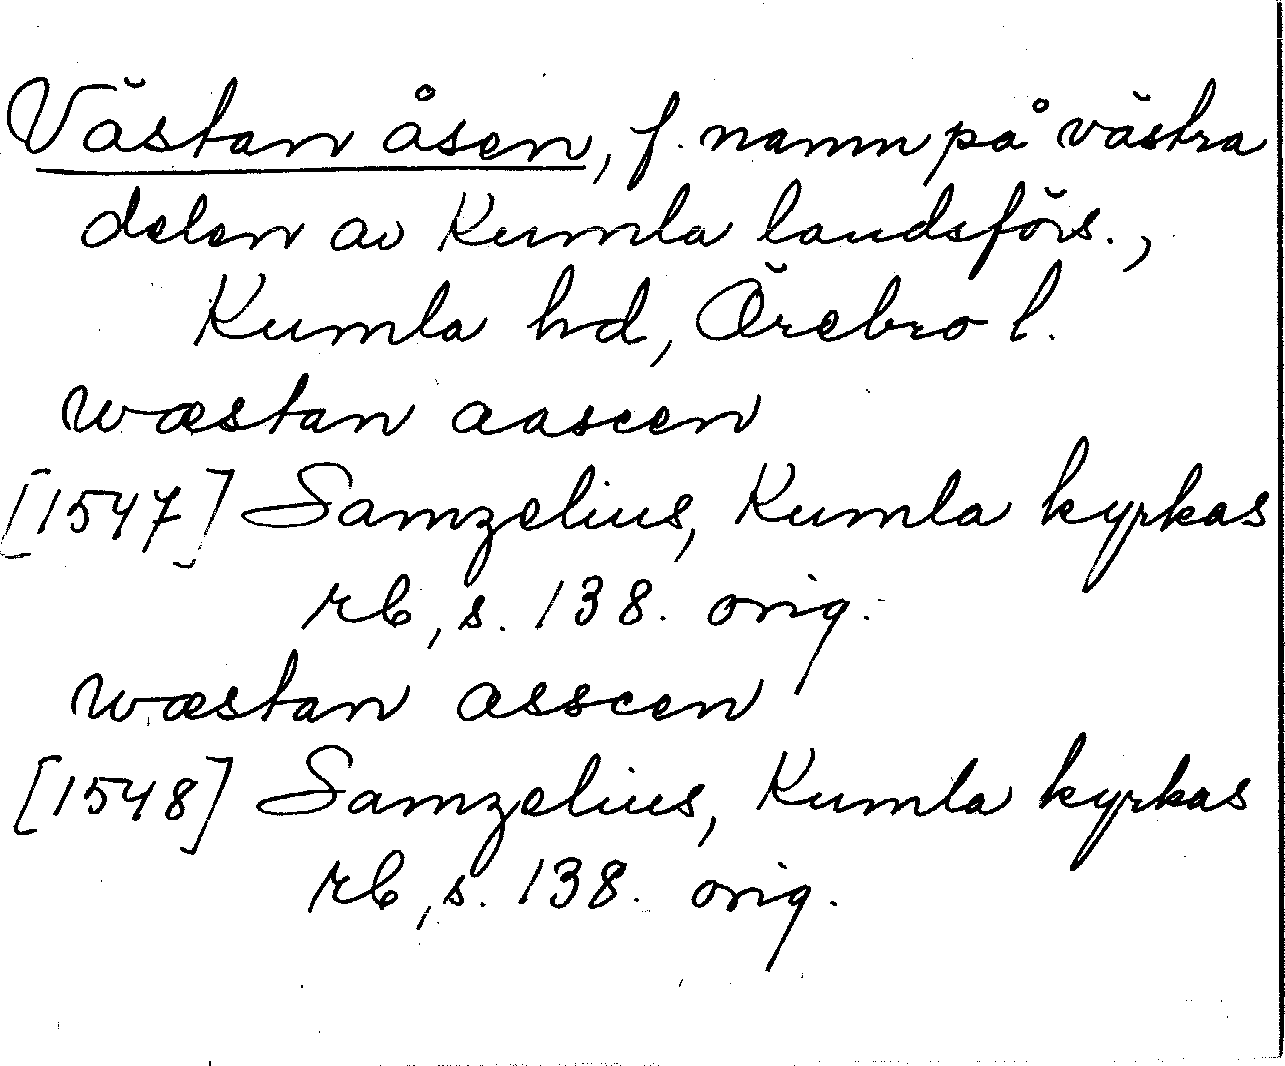 Västan åsen, f. namn på västra
delen av Kumla landsförs.,
Kumla hd, Örebro l.
wæstan aascen
[1547] Samzelius, Kumla kyrkas
rb, s. 138. orig.
wæstan asscen
[1548] Samzelius, Kumla kyrkas
rb, s. 138. orig.